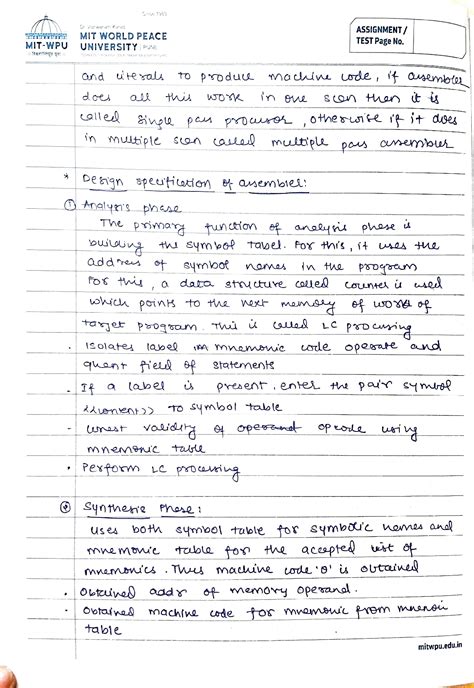 Since 1983
Dr. Vishwanath Karad
MIT WORLD PEACE
UNIVERSITY | PUNE
MIT-WPU
ASSIGNMENT /
TEST Page No.
and literals to produce machine code, if assembler
does all this work in one scan then it is
called single pass procesor, otherwise if it does
in multiple scan called multiple pass assembler
* Design specification of assembler:
① Analysis phase
The primary function of analysis phase is
building the symbol tabel. For this, it uses the
address of symbol names in the program
For this, a data structure called counter is used
which points to the next memory of word of
target program. This is called LC processing
· Isolates label mnemonic code operate and
field of statements
· If a label is present, enter the pair symbol
<<content>> to symbol table
· validity of operand opcode using
mnemonic table
· Perform LC processing
Synthesis Phase:
Uses both symbol table for symbolic names and
mnemonic table for the accepted list of
mnemonics. Thus machine code 'O' is obtained
· Obtained addr of memory operand.
· Obtained machine code for mnemonic from
table
mitwpu.edu.in